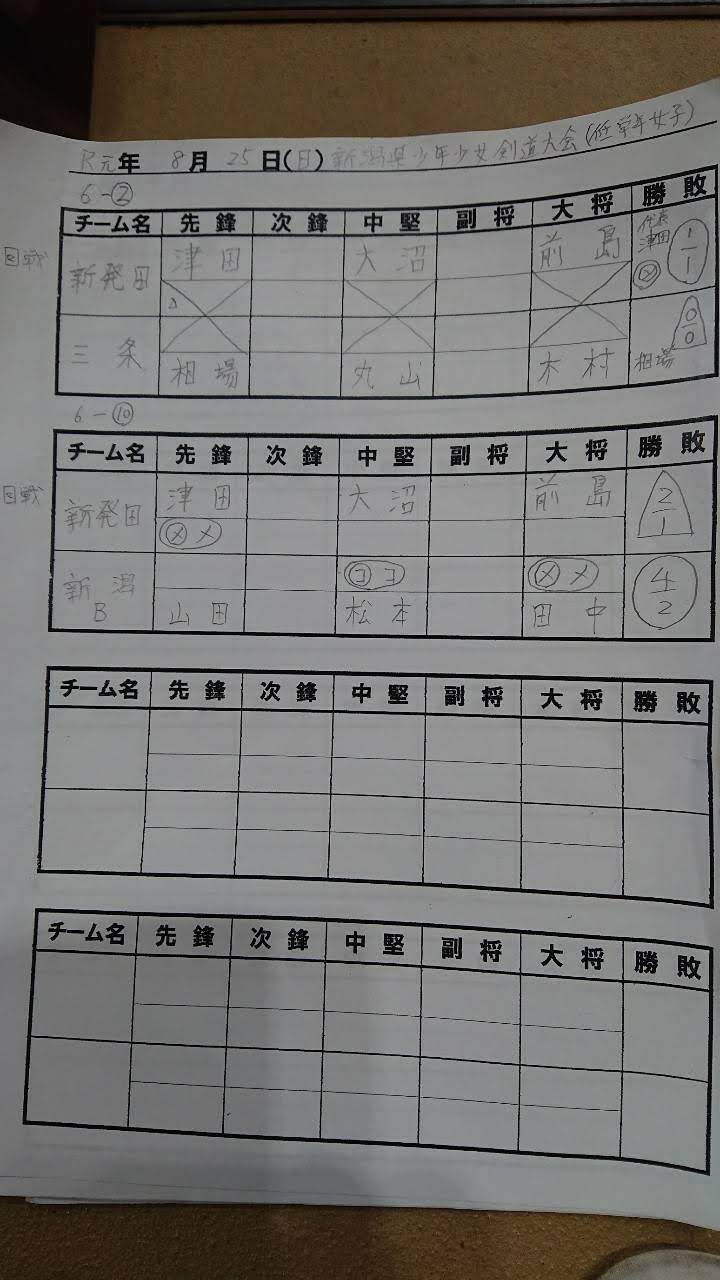 R元年 8月 25日(日) 新潟県少年少女剣道大会(低学年女子)
6-②
チーム名 先鋒 次鋒 中堅 副将 大将 勝敗
回戦 新発田 津田 大沼 前島 代表 津田 ㋱ 1/1
△
三条 相場 丸山 木村 相場 0/0
6-⑩
チーム名 先鋒 次鋒 中堅 副将 大将 勝敗
回戦 新発田 津田 大沼 前島 2/1
㋱メ
㋙コ ㋱メ
新潟B 山田 松本 田中 4/2
チーム名 先鋒 次鋒 中堅 副将 大将 勝敗
チーム名 先鋒 次鋒 中堅 副将 大将 勝敗